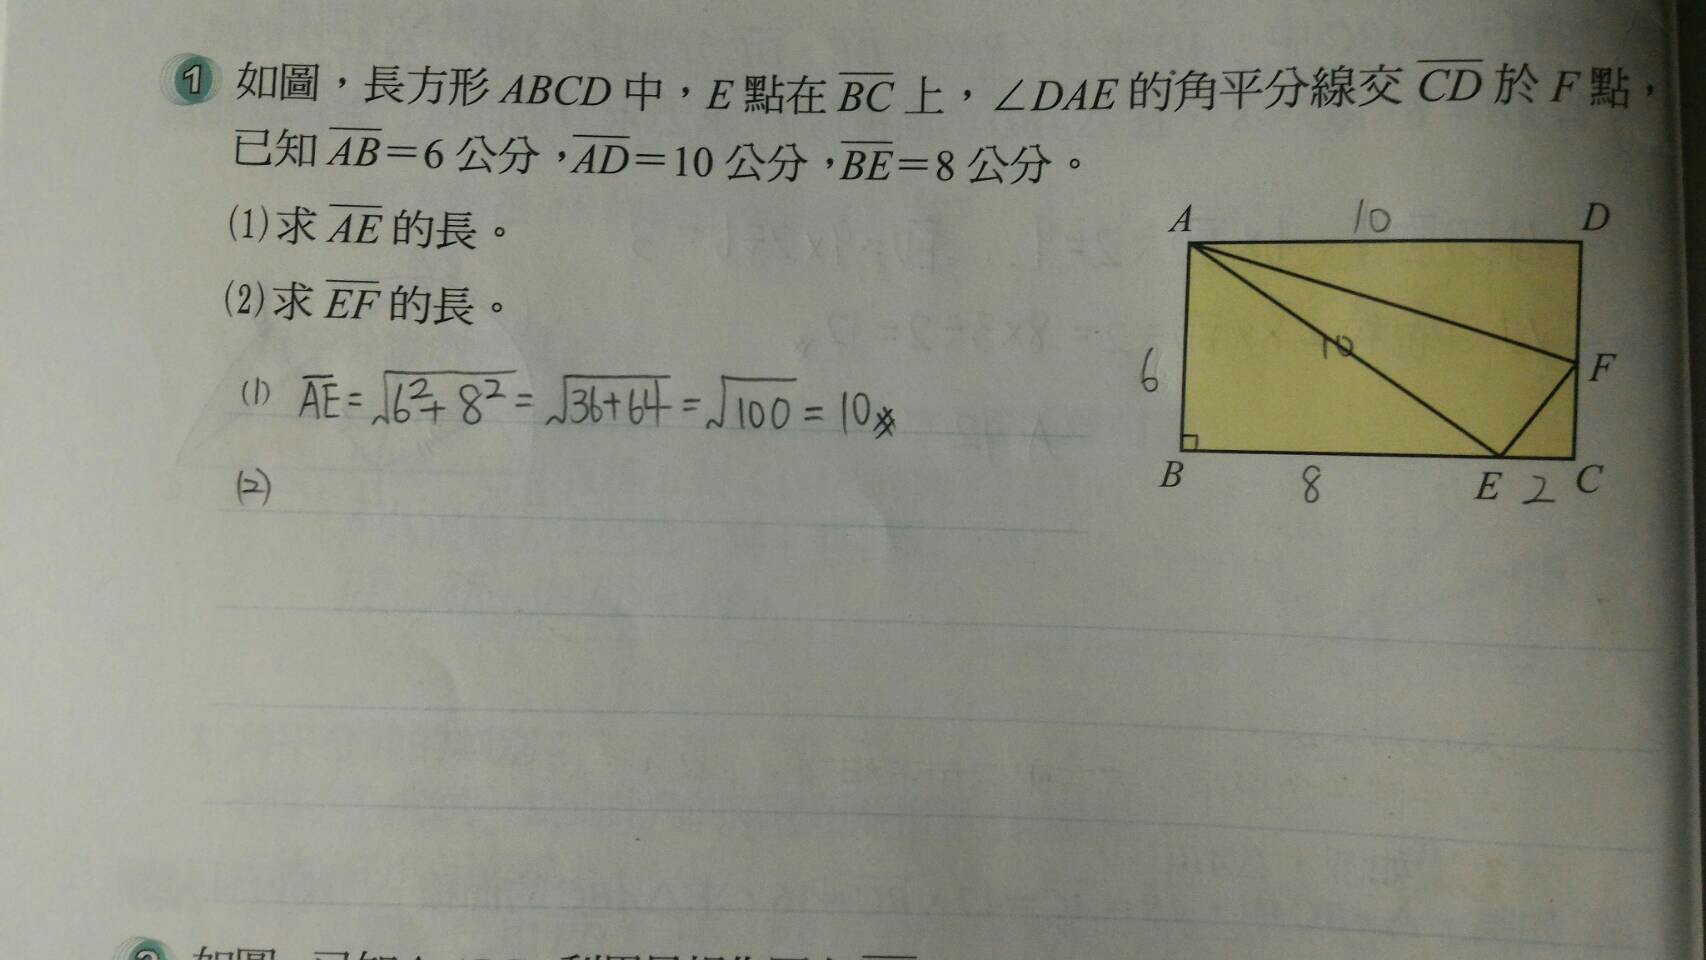 1 如圖，長方形 ABCD 中，E 點在 BC 上，∠DAE 的角平分線交 CD 於 F 點，
已知 AB＝6 公分，AD＝10 公分，BE＝8 公分。
(1)求 AE 的長。
(2)求 EF 的長。
A 10 D
10
6 F
B 8 E 2 C
(1) AE = √6²+8² = √36+64 = √100 = 10
(2)
如圖